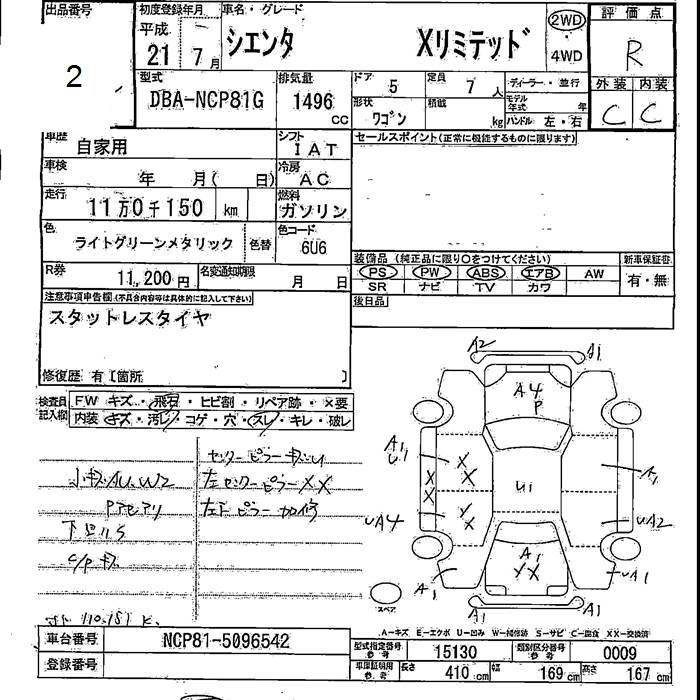 出品番号
2
初度登録年月 車名・グレード
平成 21 年 7月 シエンタ Xリミテッド 2WD・4WD
評価点
R
型式 排気量 ドア 定員 ディーラー・並行
DBA-NCP81G 1496 cc 5 7 人
形状 積載 モデル年式 年
ワゴン kg ハンドル 左・右
外装 内装
C C
車歴 シフト セールスポイント(正常に機能するものに限ります)
自家用 IAT
車検 冷房
年 月( 日) AC
走行 燃料
11万0千150 km ガソリン
色 色替 色コード
ライトグリーンメタリック 6U6
装備品(純正品に限り○をつけてください) 新車保証書
PS PW ABS エアB AW 有・無
SR ナビ TV カワ
R券 名変通知期限
11,200円 月 日
後日品
注意事項申告欄(不具合内容等は具体的に記入して下さい)
スタットレスタイヤ
修復歴 有 [箇所 ]
検査員記入欄
FW キズ・飛石・ヒビ割・リペア跡・×要
内装 キズ・汚レ・コゲ・穴・スレ・キレ・破レ
センターピラー
小キズAU.W2 左センターピラーXX
左下ピラー加修
A2 A1
A4
P
A1
U1
X X
X X
X X
U1
A1
UA4 UA2
A1
XX
A1 UA1
A1 A1
スペア
A-キズ E-エクボ U-凹み W-補修跡 S-サビ C-腐食 XX-交換済
車台番号 NCP81-5096542
登録番号
型式指定番号 参考 15130 類別区分番号 参考 0009
車庫証明用 参考 長さ 410 cm 幅 169 cm 高さ 167 cm